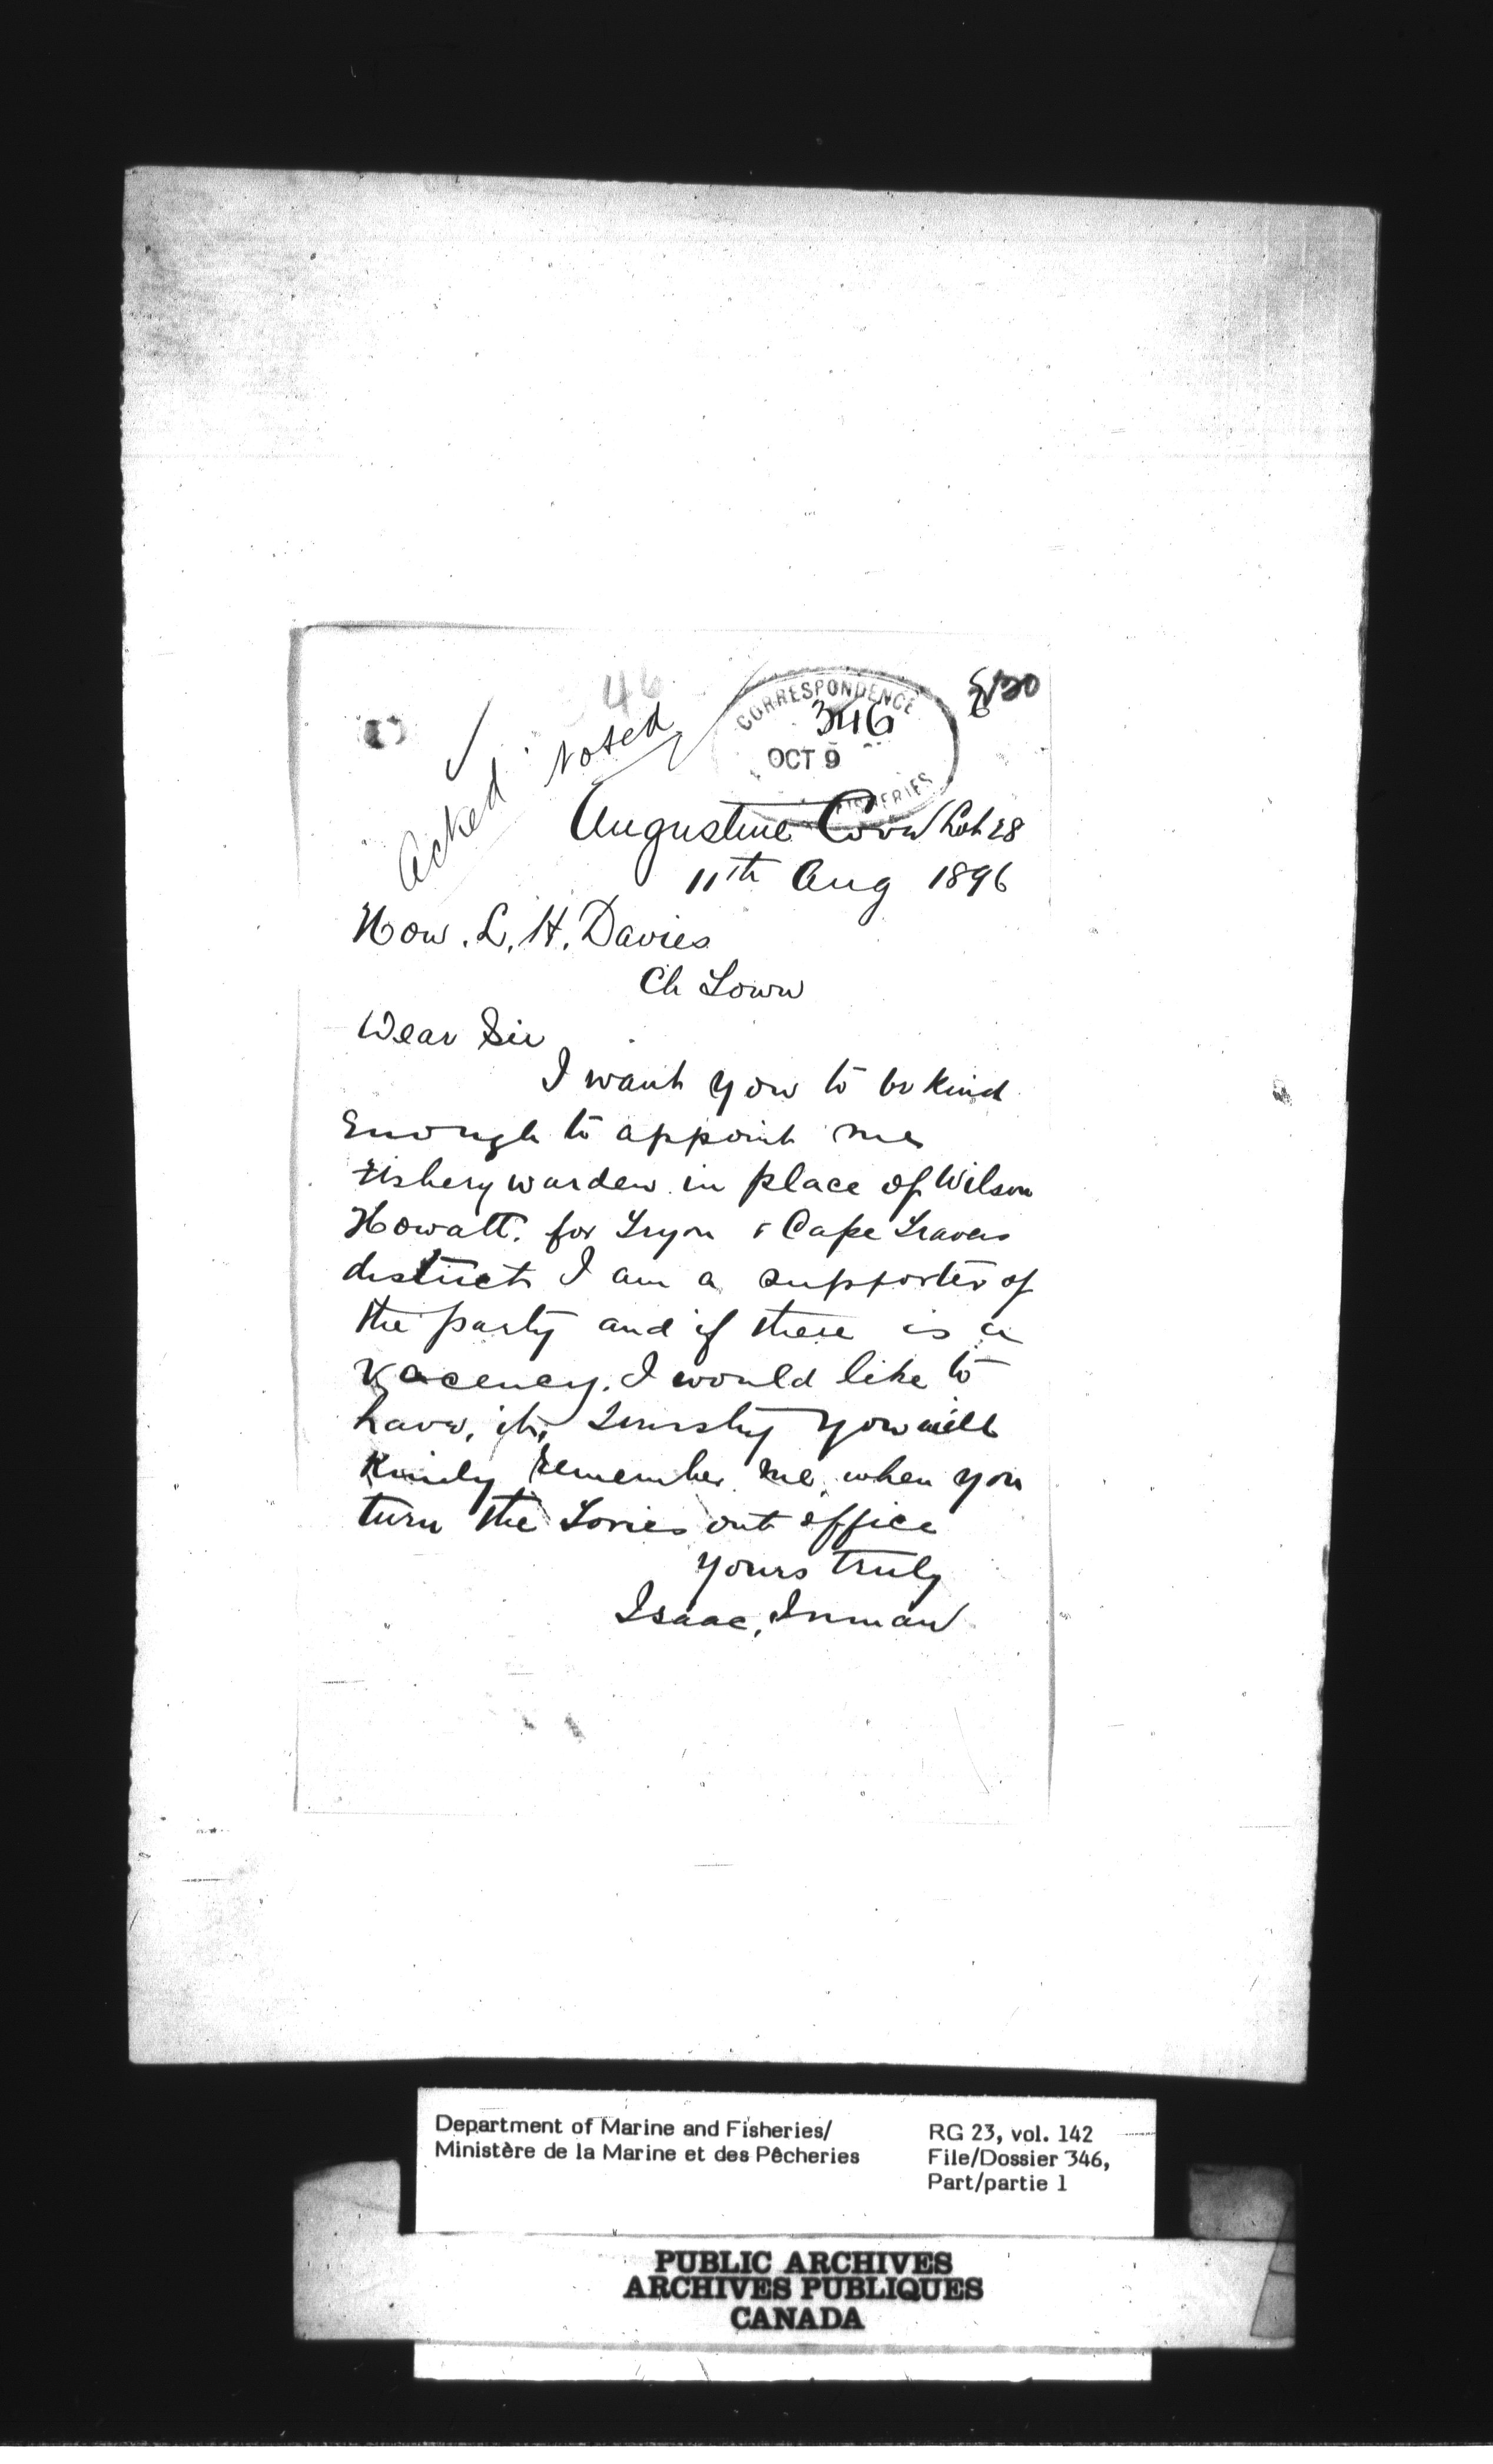 46
CORRESPONDENCE
346
OCT 9
FISHERIES
Acked Noted
Augustine Cove Lot 28
11th Aug 1896
Hon. L. H. Davies
Ch Town
Dear Sir
I want you to be kind
Enough to appoint me
fishery warden in place of Wilson
Howatt. for Tryon & Cape Travers
district I am a supporter of
the party and if there is a
vacency. I would like to
have, it, Trusting you will
Kindly remember me when you
turn the Tories out office
yours truly
Isaac, Inman
Department of Marine and Fisheries/
Ministère de la Marine et des Pêcheries
RG 23, vol. 142
File/Dossier 346,
Part/partie 1
PUBLIC ARCHIVES
ARCHIVES PUBLIQUES
CANADA